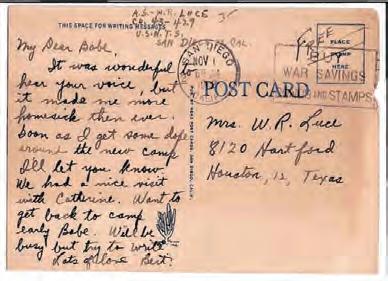 A.S. W.R. LUCE
CO. 43-429
U.S.N.T.S.
SAN DIEGO, CAL.
THIS SPACE FOR WRITING MESSAGES
My Dear Babe,
It was wonderful
hear your voice, but
it made me more
homesick then ever.
Soon as I get some dope
around the new camp
I'll let you know.
We had a nice visit
with Catherine. Want to
get back to camp
early Babe. Will be
busy but try to write
Lots of love Bert.
SAN DIEGO
NOV 1
FREE
PLACE
STAMP
HERE
BUY
WAR SAVINGS
BONDS AND STAMPS
POST CARD
Mrs. W. R. Luce
8120 Hartford
Houston, 12, Texas